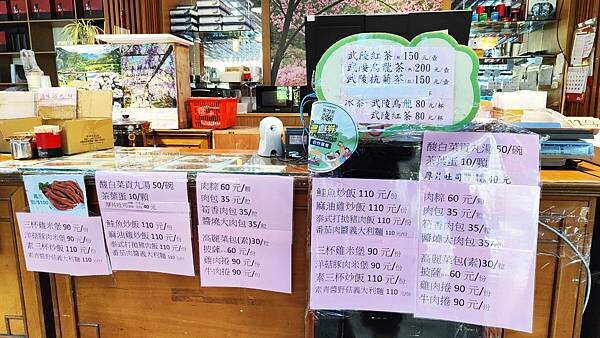 武陵紅茶 熱 150元/壺
武陵烏龍茶 熱 200元/壺
武陵杭菊茶 熱 150元/壺
冰茶:武陵烏龍 80元/杯
武陵紅茶 80元/杯
三杯雞米堡 90元/份
洋菇豚肉米堡 90元/份
素三杯炒飯 110元/份
素青醬野菇義大利麵 110元/份
酸白菜貢丸湯 50/碗
茶葉蛋 10/顆
厚片吐司 40元
鮭魚炒飯 110元/份
麻油雞炒飯 110元/份
泰式打拋豬肉飯 110元/份
蕃茄肉醬義大利麵 110元/份
肉粽 60元/顆
肉包 35元/粒
筍香肉包 35/粒
醬燒大肉包 35/粒
高麗菜包(素)30/粒
披薩 60元/份
雞肉捲 90元/份
牛肉捲 90元/份
鮭魚炒飯 110元/份
麻油雞炒飯 110元/份
泰式打拋豬肉飯 110元/份
蕃茄肉醬義大利麵 110元/份
三杯雞米堡 90元/份
洋菇豚肉米堡 90元/份
素三杯炒飯 110元/份
素青醬野菇義大利麵 110元/份
酸白菜貢丸湯 50/碗
茶葉蛋 10/顆
厚片吐司 40元
肉粽 60元/顆
肉包 35元/粒
筍香肉包 35/粒
醬燒大肉包 35/粒
高麗菜包(素)30/粒
披薩 60元/份
雞肉捲 90元/份
牛肉捲 90元/份